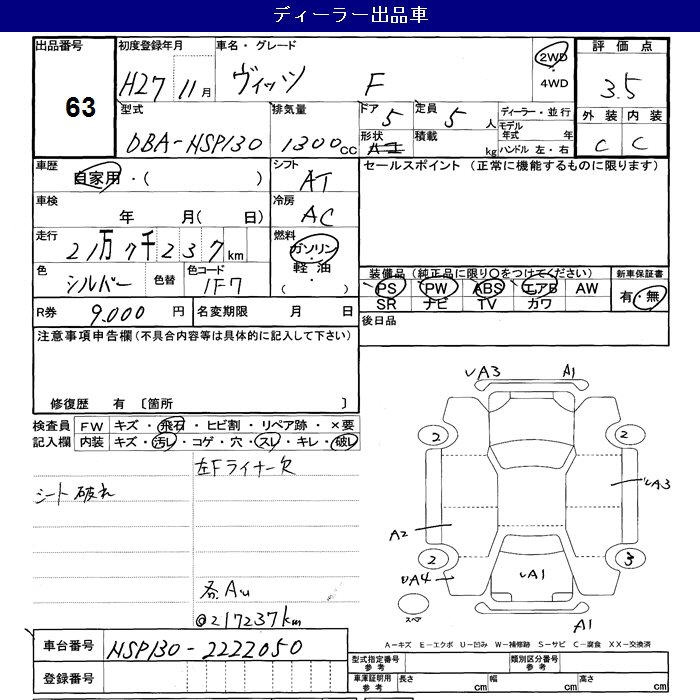 ディーラー出品車
出品番号 初度登録年月 車名・グレード 評価点
63 H27 11月 ヴィッツ F 2WD 4WD 3.5
型式 排気量 ドア 定員 ディーラー・並行 外装 内装
DBA-HSP130 1300cc 5 5人 モデル年式 年 C C
形状 積載 kg ハンドル 左・右
車歴 シフト セールスポイント (正常に機能するものに限ります)
自家用・( ) AT
車検 冷房
年 月( 日) AC
走行 燃料
21万7千237km ガソリン・軽油・( )
色 色替 色コード 装備品 (純正品に限り○をつけてください) 新車保証書
シルバー 1F7 PS PW ABS エアB AW 有・無
SR ナビ TV カワ
R券 9.000円 名変期限 月 日 後日品
注意事項申告欄(不具合内容等は具体的に記入して下さい)
修復歴 有 〔箇所 〕
検査員 FW キズ・飛石・ヒビ割・リペア跡・×要
記入欄 内装 キズ・汚レ・コゲ・穴・スレ・キレ・破レ
左Fライナー欠
シート破れ
各AU
@217237km
UA3 A1
2 2
UA3
A2
2 3
UA4 UA1
スペア
A1
A-キズ E-エクボ U-凹み W-補修跡 S-サビ C-腐食 XX-交換済
車台番号 HSP130-2222050
登録番号
型式指定番号 参考 類別区分番号 参考
車庫証明用 参考 長さ cm 幅 cm 高さ cm